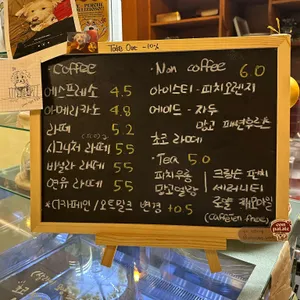 Take Out -10%
· Coffee
에스프레소 4.5
아메리카노 4.8
라떼 5.2
시그니처 라떼 5.5
바닐라 라떼 5.5
연유 라떼 5.5
*디카페인/오트밀크 변경 +0.5
· Non coffee 6.0
아이스티 - 피치오렌지
에이드 - 자두
망고 패션후르츠
초코 라떼
· Tea 5.0
피치우롱
세레니티
(caffeien free)